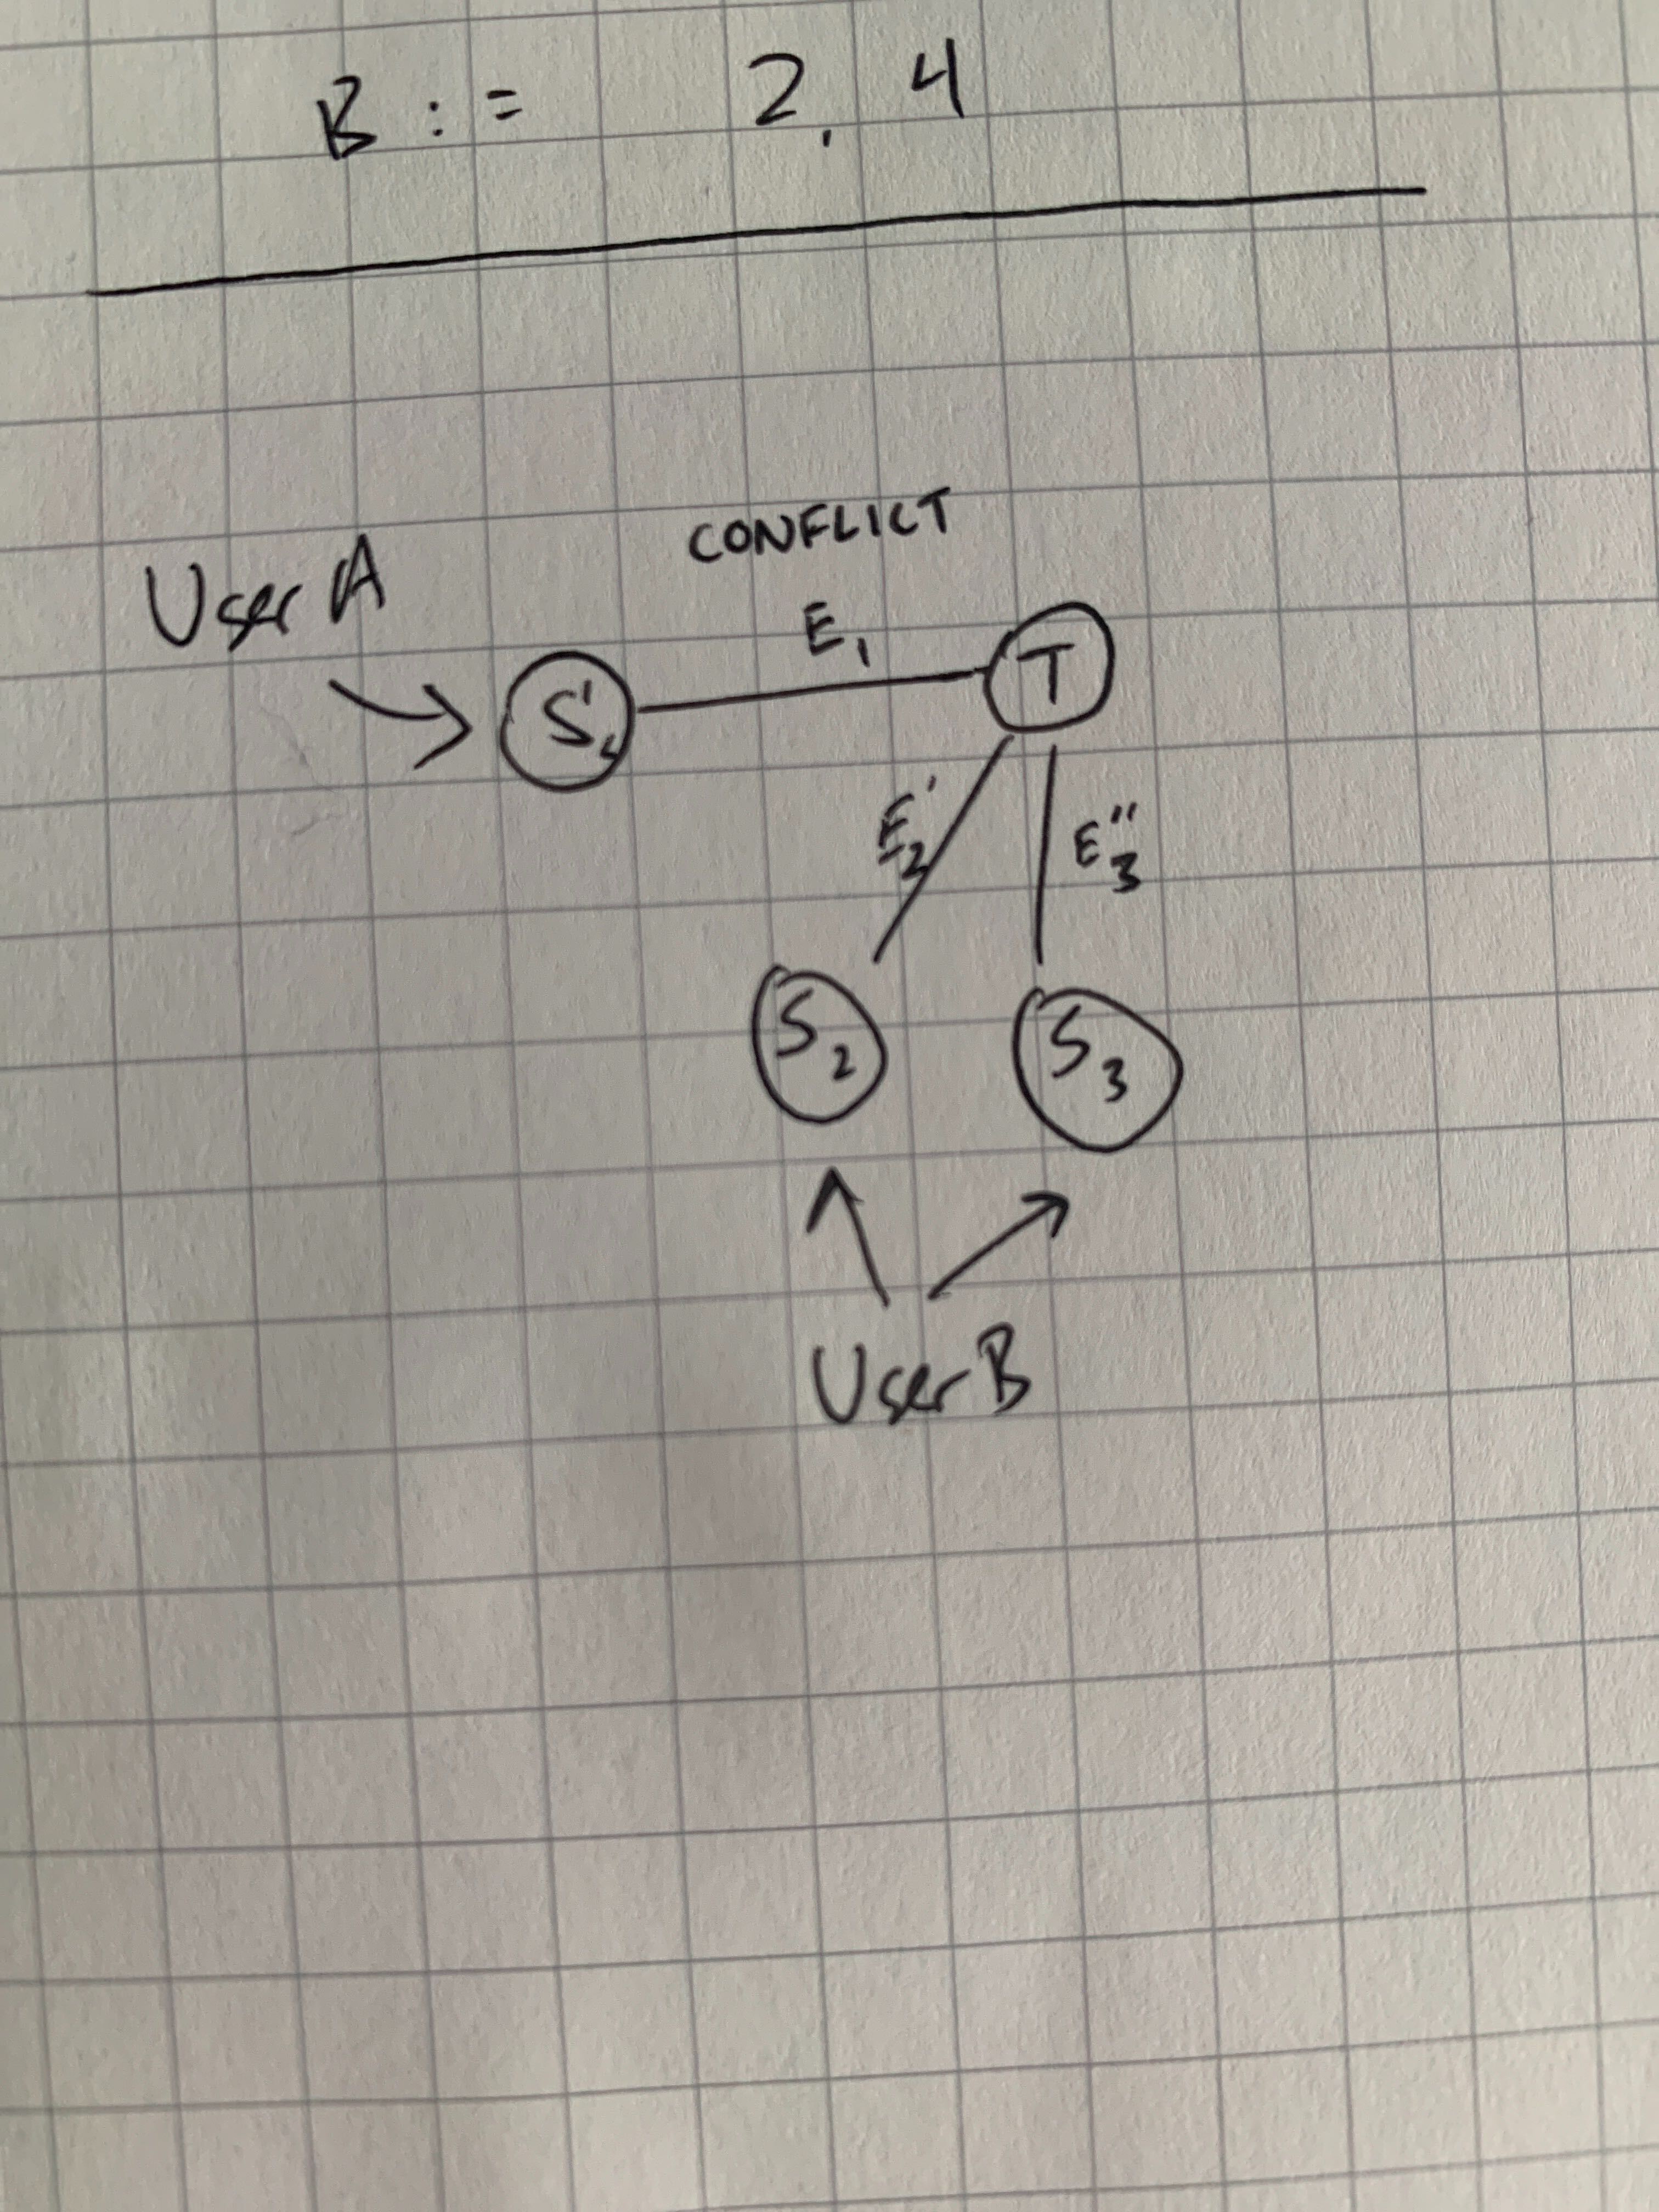 B := 2, 4
CONFLICT
User A
E₁
S' T
E'₂ E''₃
S₂ S₃
User B